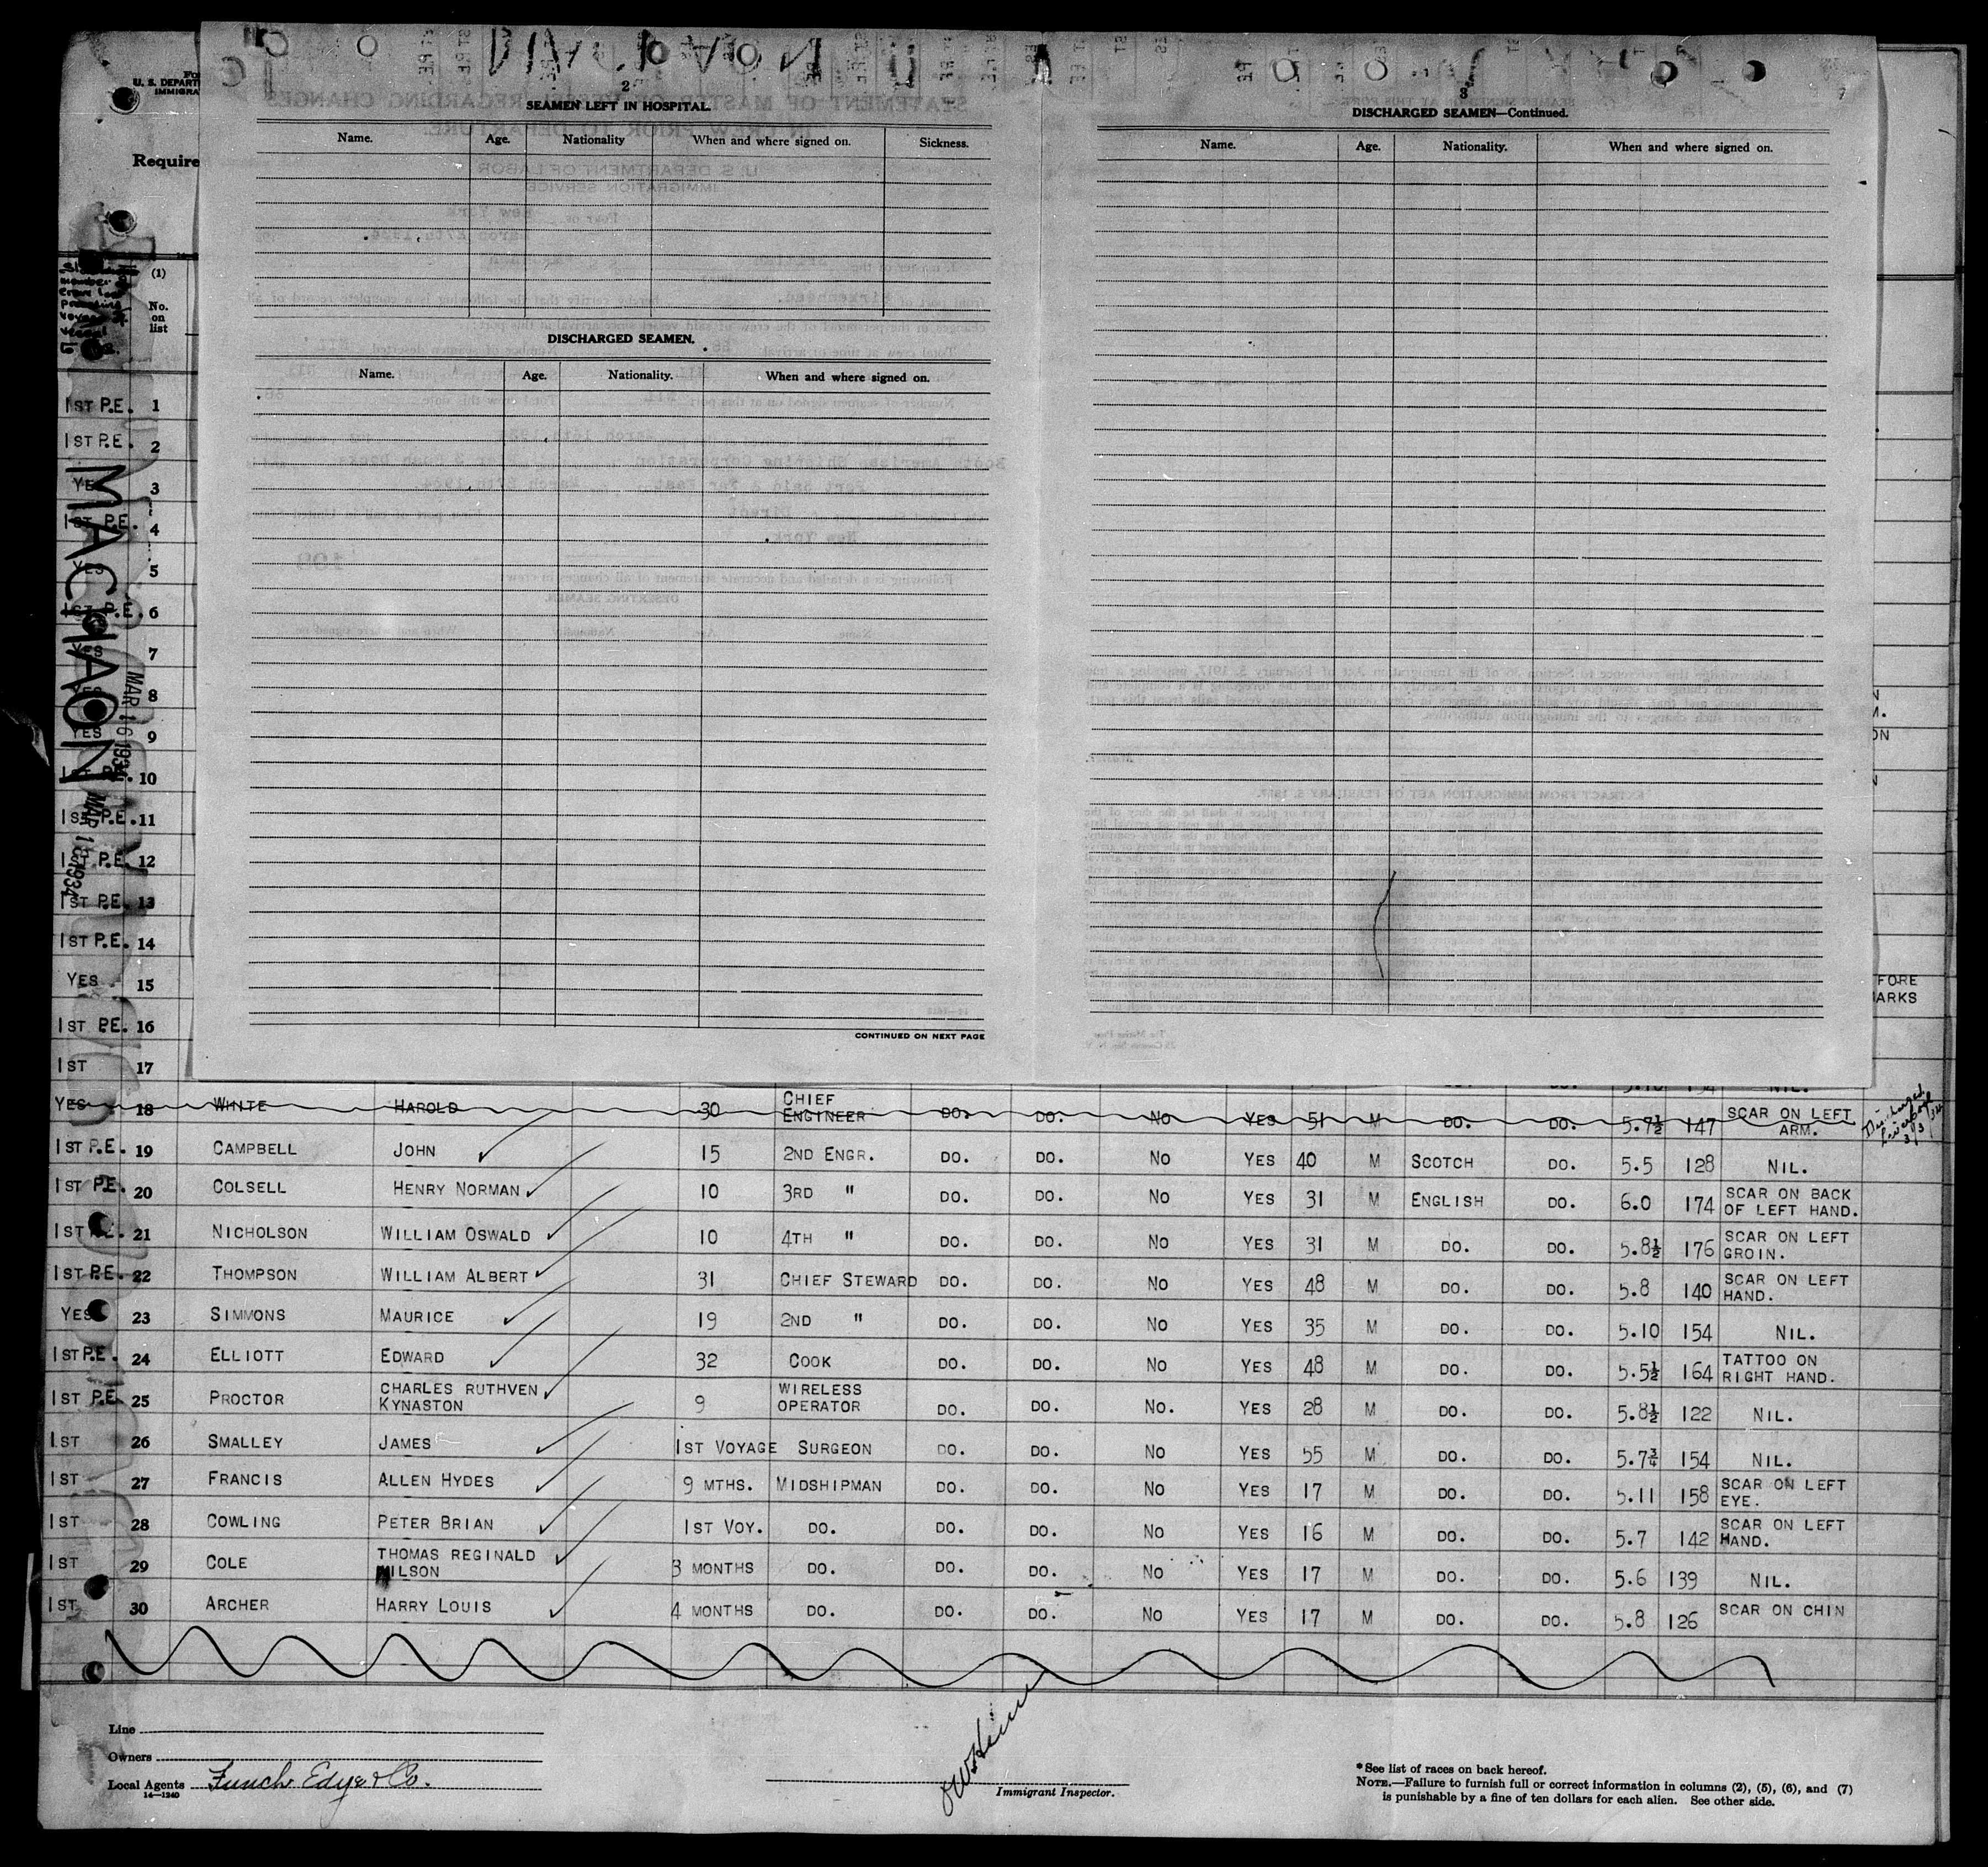 U. S. DEPART
IMMIGRA
Require
MACHAON
MAR 16 1934
(1)
No.
on
list
2
SEAMEN LEFT IN HOSPITAL.
Name. Age. Nationality When and where signed on. Sickness.
DISCHARGED SEAMEN.
Name. Age. Nationality. When and where signed on.
CONTINUED ON NEXT PAGE
3
DISCHARGED SEAMEN—Continued.
Name. Age. Nationality. When and where signed on.
1ST P.E. 1
1ST P.E. 2
YES 3
1ST P.E. 4
YES 5
1ST P.E. 6
YES 7
YES 8
YES 9
1ST P.E. 10
1ST P.E. 11
1ST P.E. 12
1ST P.E. 13
1ST P.E. 14
YES 15
FORE
ARKS
1ST P.E. 16
1ST 17
YES 18 WHITE HAROLD 30 CHIEF ENGINEER DO. DO. NO YES 51 M DO. DO. 5.7½ 147 SCAR ON LEFT ARM.
1ST P.E. 19 CAMPBELL JOHN 15 2ND ENGR. DO. DO. NO YES 40 M SCOTCH DO. 5.5 128 NIL.
1ST P.E. 20 COLSELL HENRY NORMAN 10 3RD " DO. DO. NO YES 31 M ENGLISH DO. 6.0 174 SCAR ON BACK OF LEFT HAND.
1ST P.E. 21 NICHOLSON WILLIAM OSWALD 10 4TH " DO. DO. NO YES 31 M DO. DO. 5.8½ 176 SCAR ON LEFT GROIN.
1ST P.E. 22 THOMPSON WILLIAM ALBERT 31 CHIEF STEWARD DO. DO. NO YES 48 M DO. DO. 5.8 140 SCAR ON LEFT HAND.
YES 23 SIMMONS MAURICE 19 2ND " DO. DO. NO YES 35 M DO. DO. 5.10 154 NIL.
1ST P.E. 24 ELLIOTT EDWARD 32 COOK DO. DO. NO YES 48 M DO. DO. 5.5½ 164 TATTOO ON RIGHT HAND.
1ST P.E. 25 PROCTOR CHARLES RUTHVEN KYNASTON 9 WIRELESS OPERATOR DO. DO. NO. YES 28 M DO. DO. 5.8½ 122 NIL.
1ST 26 SMALLEY JAMES 1ST VOYAGE SURGEON DO. DO. NO YES 55 M DO. DO. 5.7¾ 154 NIL.
1ST 27 FRANCIS ALLEN HYDES 9 MTHS. MIDSHIPMAN DO. DO. NO YES 17 M DO. DO. 5.11 158 SCAR ON LEFT EYE.
1ST 28 COWLING PETER BRIAN 1ST VOY. DO. DO. DO. NO YES 16 M DO. DO. 5.7 142 SCAR ON LEFT HAND.
1ST 29 COLE THOMAS REGINALD WILSON 3 MONTHS DO. DO. DO. NO YES 17 M DO. DO. 5.6 139 NIL.
1ST 30 ARCHER HARRY LOUIS 4 MONTHS DO. DO. DO. NO YES 17 M DO. DO. 5.8 126 SCAR ON CHIN
Line
Owners
Local Agents Funch Edye & Co.
14—1240
Immigrant Inspector.
* See list of races on back hereof.
NOTE.—Failure to furnish full or correct information in columns (2), (5), (6), and (7)
is punishable by a fine of ten dollars for each alien. See other side.